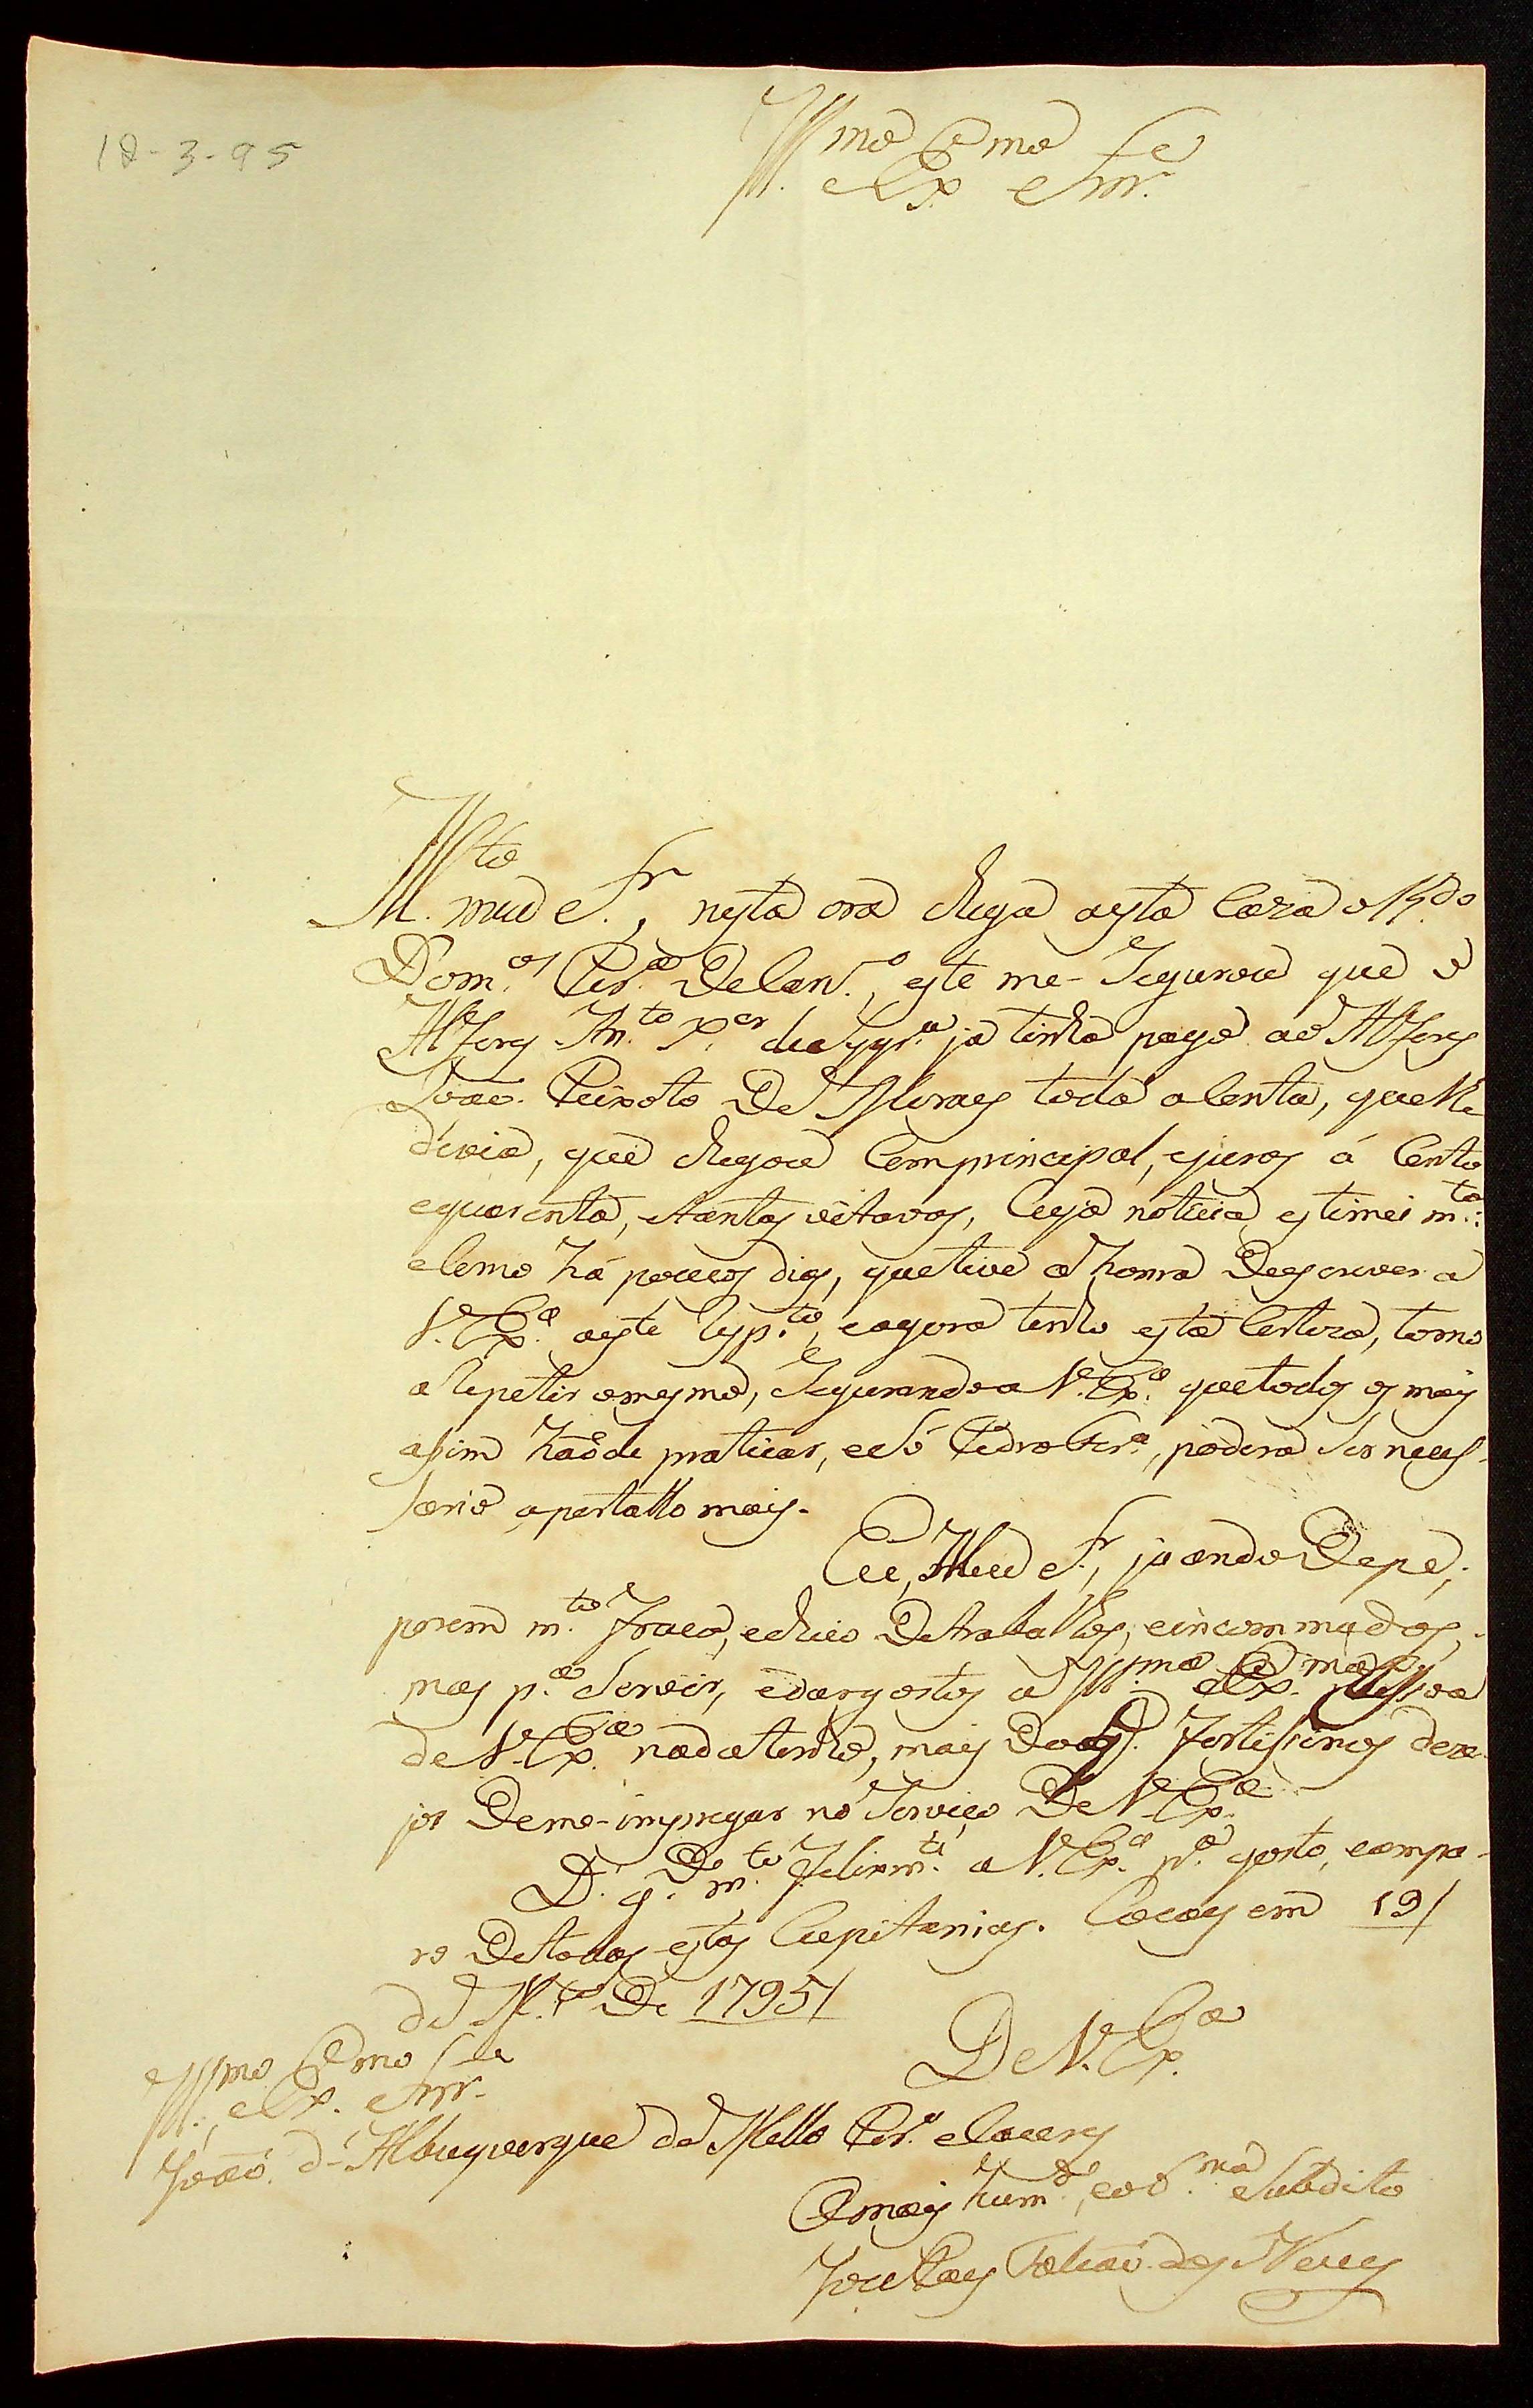 18-3-95
Ill.mo Ex.mo Snr.
M.to meu S.r, nesta ora chega aesta Caza o R.do
Dom.os Per.a De
este me-Segurou que o
Alferes An.to X.er da Sylv.a ja tinha pago ao Alferes
João Peixoto De Moraes toda a Conta, que lhe
divia, que chegou Comprincipal, ejuros á Cento
equarenta, etantas oitavas, Cuja noticia estimei m.to:
eComo há poucos dias, quetive a honra Deescrever a
V. Ex.a aeste resp.to, eagora tenho esta Certeza, torno
a repetir omesmo, Segurando a V. Ex.a quetodos os mais
asim hãode praticar, e só Pedro Fer.a, poderá Ser neces-
sario apertallo mais.
Eu, Meu S.r, ja ando Depé;
porem m.to Fraco, echeio Detrabalhos, eincommodos,
mas p.a Servir, edargostos a Ill.ma Ex.ma Pessoa
de V. Ex.a nadatenho, mais Doq. Fortisimos deze-
jos Deme-impregar no Serviço De V. Ex.a
D.s g.De m.to Felixm.te a V. Ex.a p.a gosto, eampa-
ro Detodas estas Capitanias. Cocaes em 19/
de M.ço De 1795/
De V. Ex.a
Ill.mo Ex.mo Snr.
João d'Albuquerque de Mello Per.a eCaceres
Omais hum.de, eob.mo Subdito
José Paes Falcão das Neves